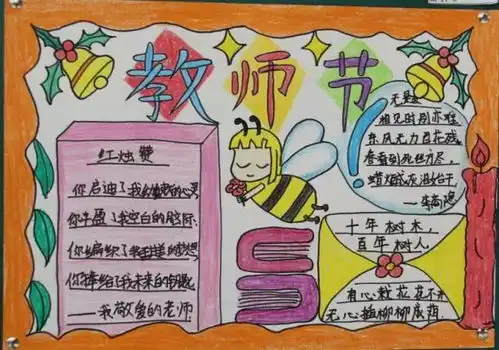 教师节
红烛赞
你启迪了我幼稚的心灵
你丰盈了我空白的脑际
你编织了我的梦想
你捧给了我未来的
——我敬爱的老师
无题
相见时别亦难
东风无力百花残
春蚕到死丝方尽，
蜡炬成灰泪始干
——李商隐
十年树木，
百年树人
有心栽花花不
无心插柳柳成荫